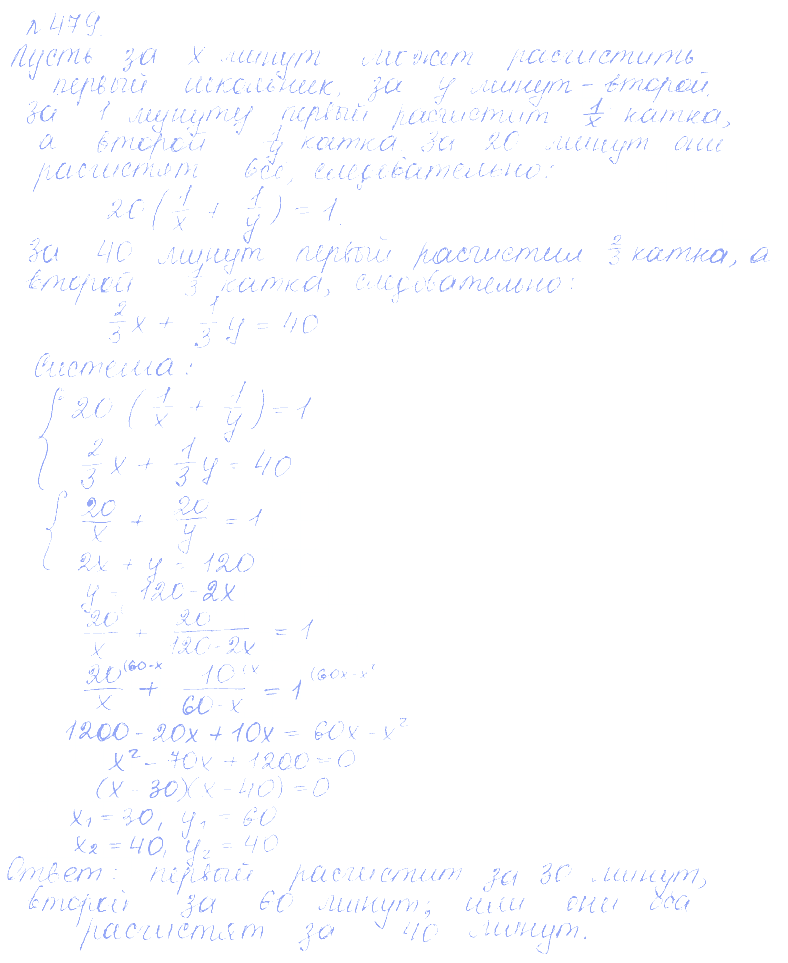 №479.
Пусть за x минут может расчистить
первый школьник, за y минут - второй.
за 1 минуту первый расчистит 1/x катка,
а второй 1/y катка за 20 минут они
расчистят все, следовательно:
20(1/x + 1/y) = 1.
За 40 минут первый расчистил 2/3 катка, а
второй 3 катка, следовательно:
2/3x + 1/3y = 40
Система:
{ 20(1/x + 1/y) = 1
2/3x + 1/3y = 40
{ 20/x + 20/y = 1
2x + y = 120
y = 120-2x
20/x + 20/(120-2x) = 1
20(60-x/x + 10(x/(60-x) = 1(60x-x²
1200-20x+10x = 60x-x²
x²-70x+1200=0
(x-30)(x-40)=0
x₁=30, y₁=60
x₂=40, y₂=40
Ответ: первый расчистит за 30 минут,
второй за 60 минут; или они оба
расчистят за 40 минут.